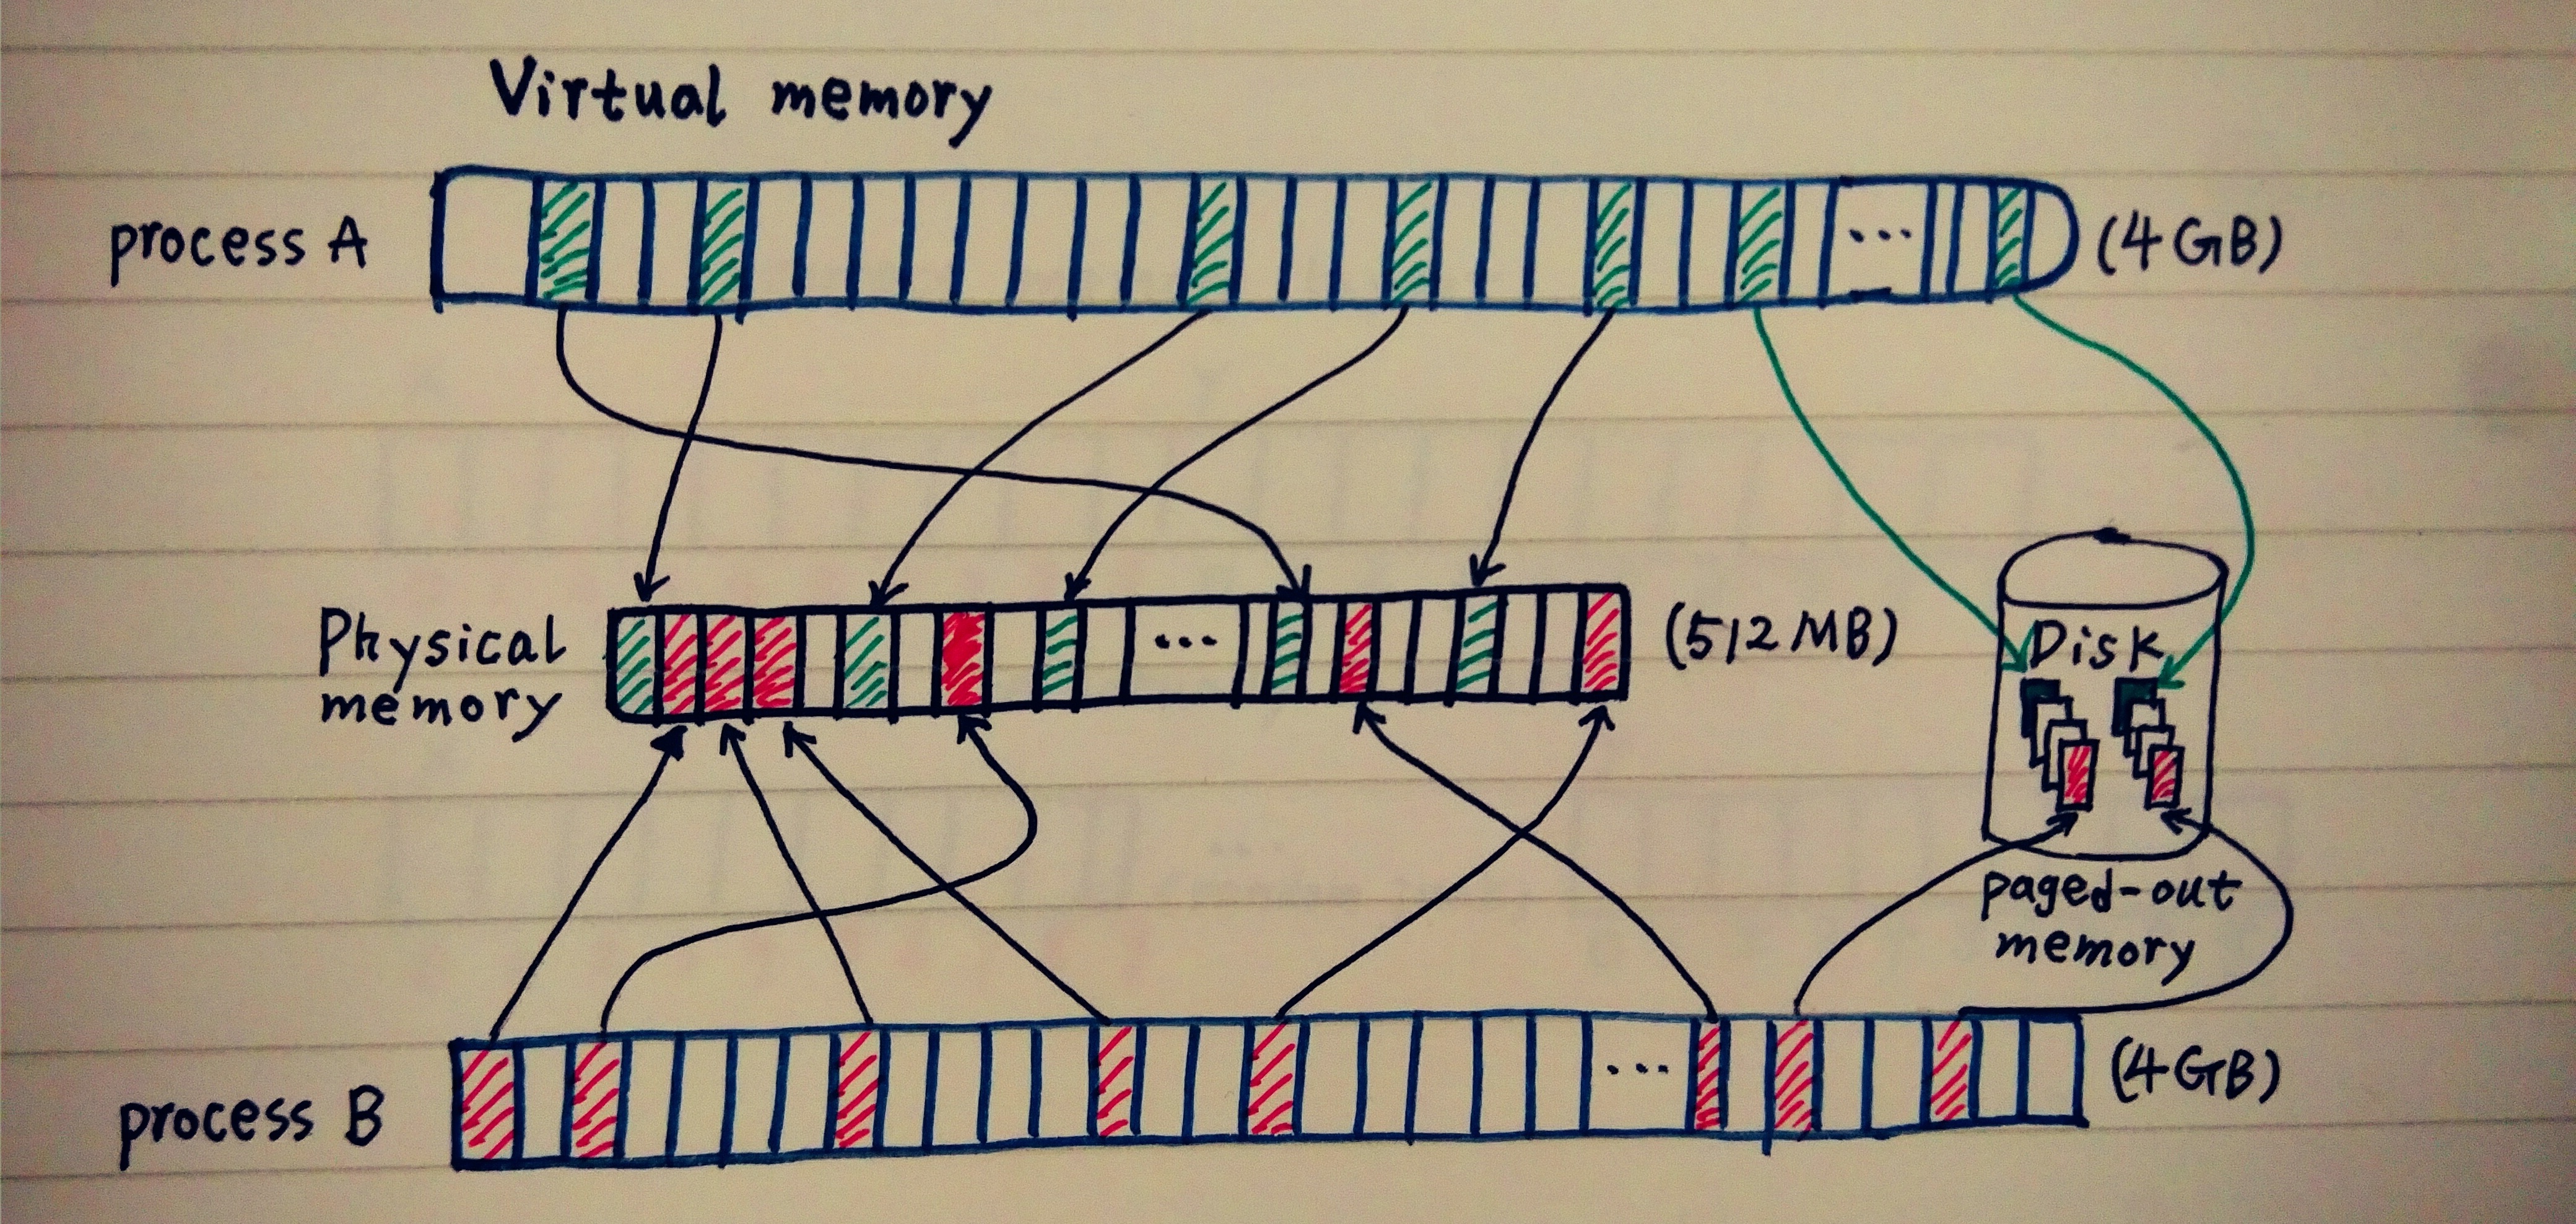 Virtual memory
process A
...
(4GB)
Physical
memory
...
(512MB)
Disk
paged-out
memory
process B
...
(4GB)